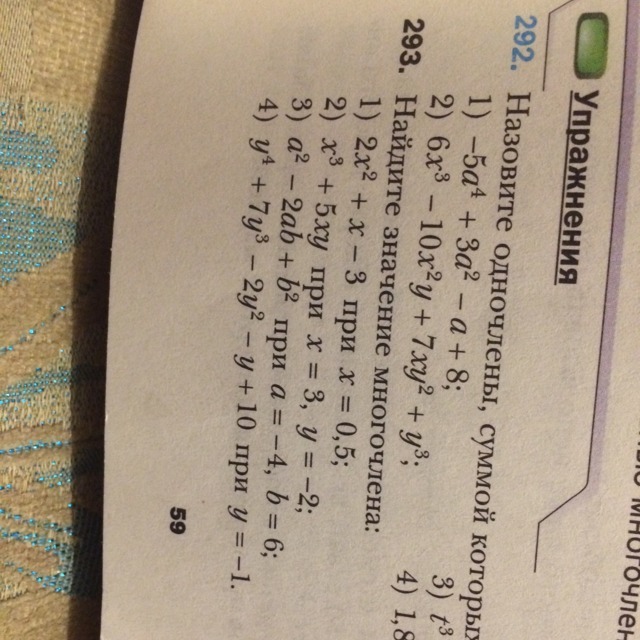 Упражнения
292. Назовите одночлены, суммой которых
1) −5a⁴ + 3a² − a + 8; 3) t³
2) 6x³ − 10x²y + 7xy² + y³; 4) 1,8
293. Найдите значение многочлена:
1) 2x² + x − 3 при x = 0,5;
2) x³ + 5xy при x = 3, y = −2;
3) a² − 2ab + b² при a = −4, b = 6;
4) y⁴ + 7y³ − 2y² − y + 10 при y = −1.
59